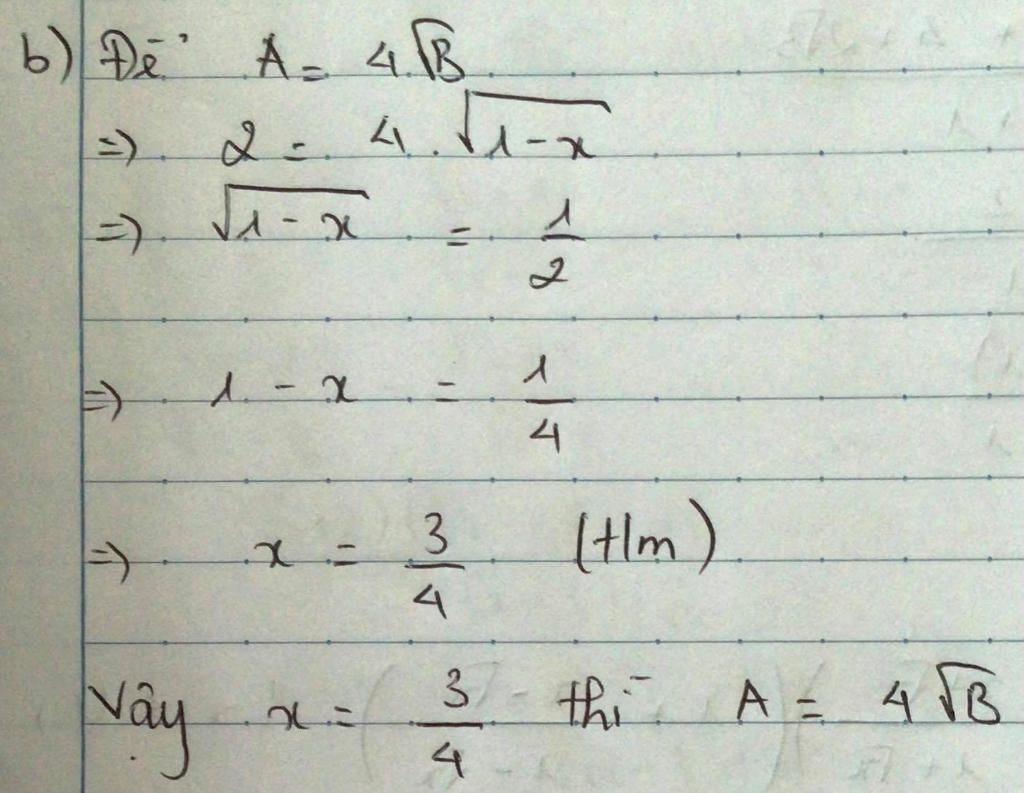 b) Để A = 4√B
=> 2 = 4 . √(1-x)
=> √(1-x) = 1/2
=> 1 - x = 1/4
=> x = 3/4 (t/m)
Vậy x = 3/4 thì A = 4√B